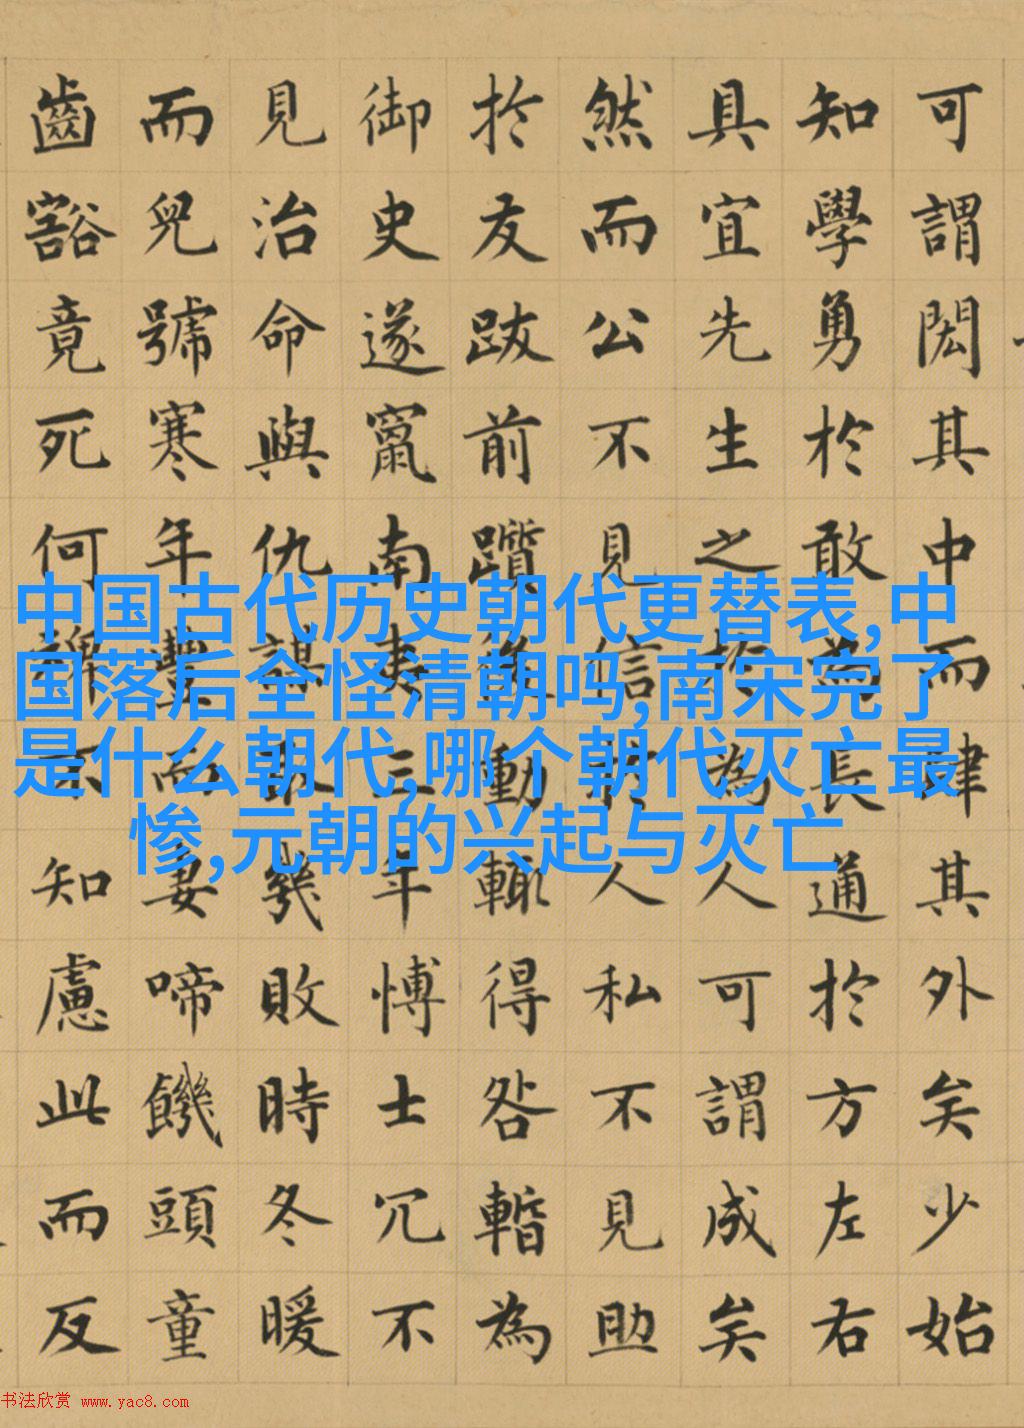 可謂閎其中而肆其外矣少始
知學勇於敢為長通於方左右
具宜先生之於為人可謂成矣
然而公不見信於人私不見助
於友跋前躓後動輒得咎暫為
御史遂竄南夷三年愽士冗不
見治命與仇謀取幾敗時冬暖
而兒號寒年豐而妻啼饑頭童
齒豁竟死何裨不知慮此而反
中国古代历史朝代更替表,中
国落后全怪清朝吗,南宋完了
是什么朝代,哪个朝代灭亡最
惨,元朝的兴起与灭亡
书法欣赏 www.yac8.com